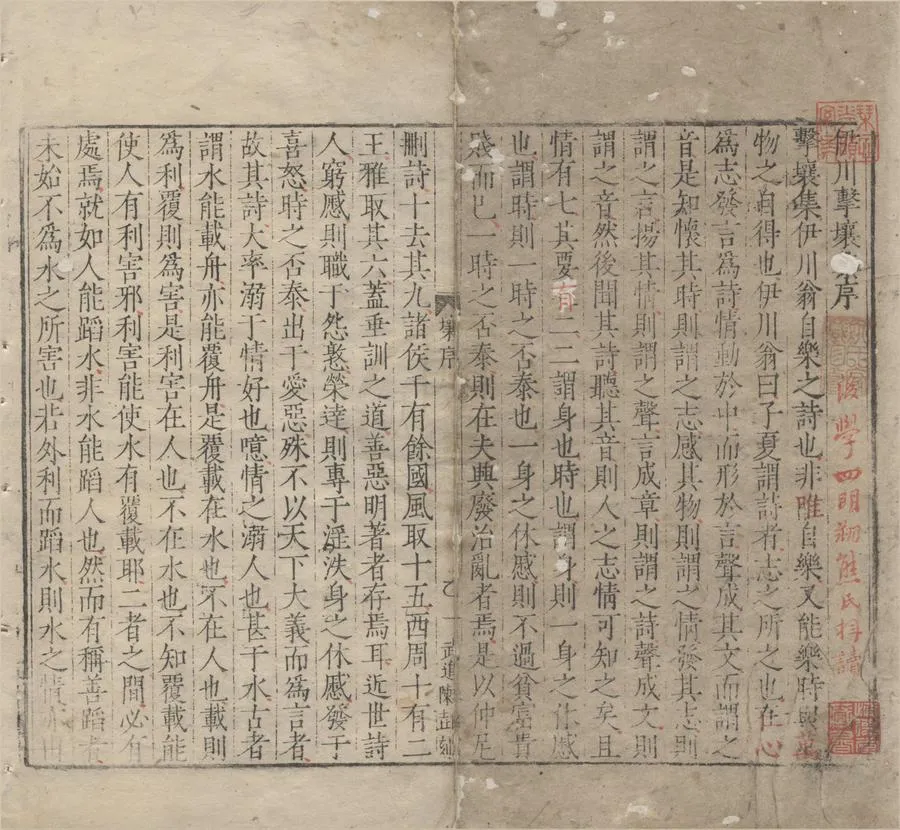 伊川擊壤集序
擊壤集伊川翁自樂之詩也非唯自樂又能樂時與萬
物之自得也伊川翁曰子夏謂詩者志之所之也在心
爲志發言爲詩情動於中而形於言聲成其文而謂之
音是知懷其時則謂之志感其物則謂之情發其志則
謂之言揚其情則謂之聲言成章則謂之詩聲成文則
謂之音然後聞其詩聽其音則人之志情可知之矣且
情有七其要有二二謂身也時也謂身則一身之休慼
也謂時則一時之否泰也一身之休慼則不過貧富貴
賤而已一時之否泰則在夫興廢治亂者焉是以仲尼
刪詩十去其九諸侯千有餘國風取十五西周十有二
王雅取其六蓋垂訓之道善惡明著者存焉耳近世詩
人窮慼則職于怨憝榮達則專于淫泆身之休慼發于
喜怒時之否泰出于愛惡殊不以天下大義而爲言者
故其詩大率溺于情好也噫情之溺人也甚于水古者
謂水能載舟亦能覆舟是覆載在水也不在人也載則
爲利覆則爲害是利害在人也不在水也不知覆載能
使人有利害邪利害能使水有覆載耶二者之間必有
處焉就如人能蹈水非水能蹈人也然而有稱善蹈者
未始不爲水之所害也若外利而蹈水則水之情亦由
壤序
乙一
武進陳
後學四明翔熊氏拜讀